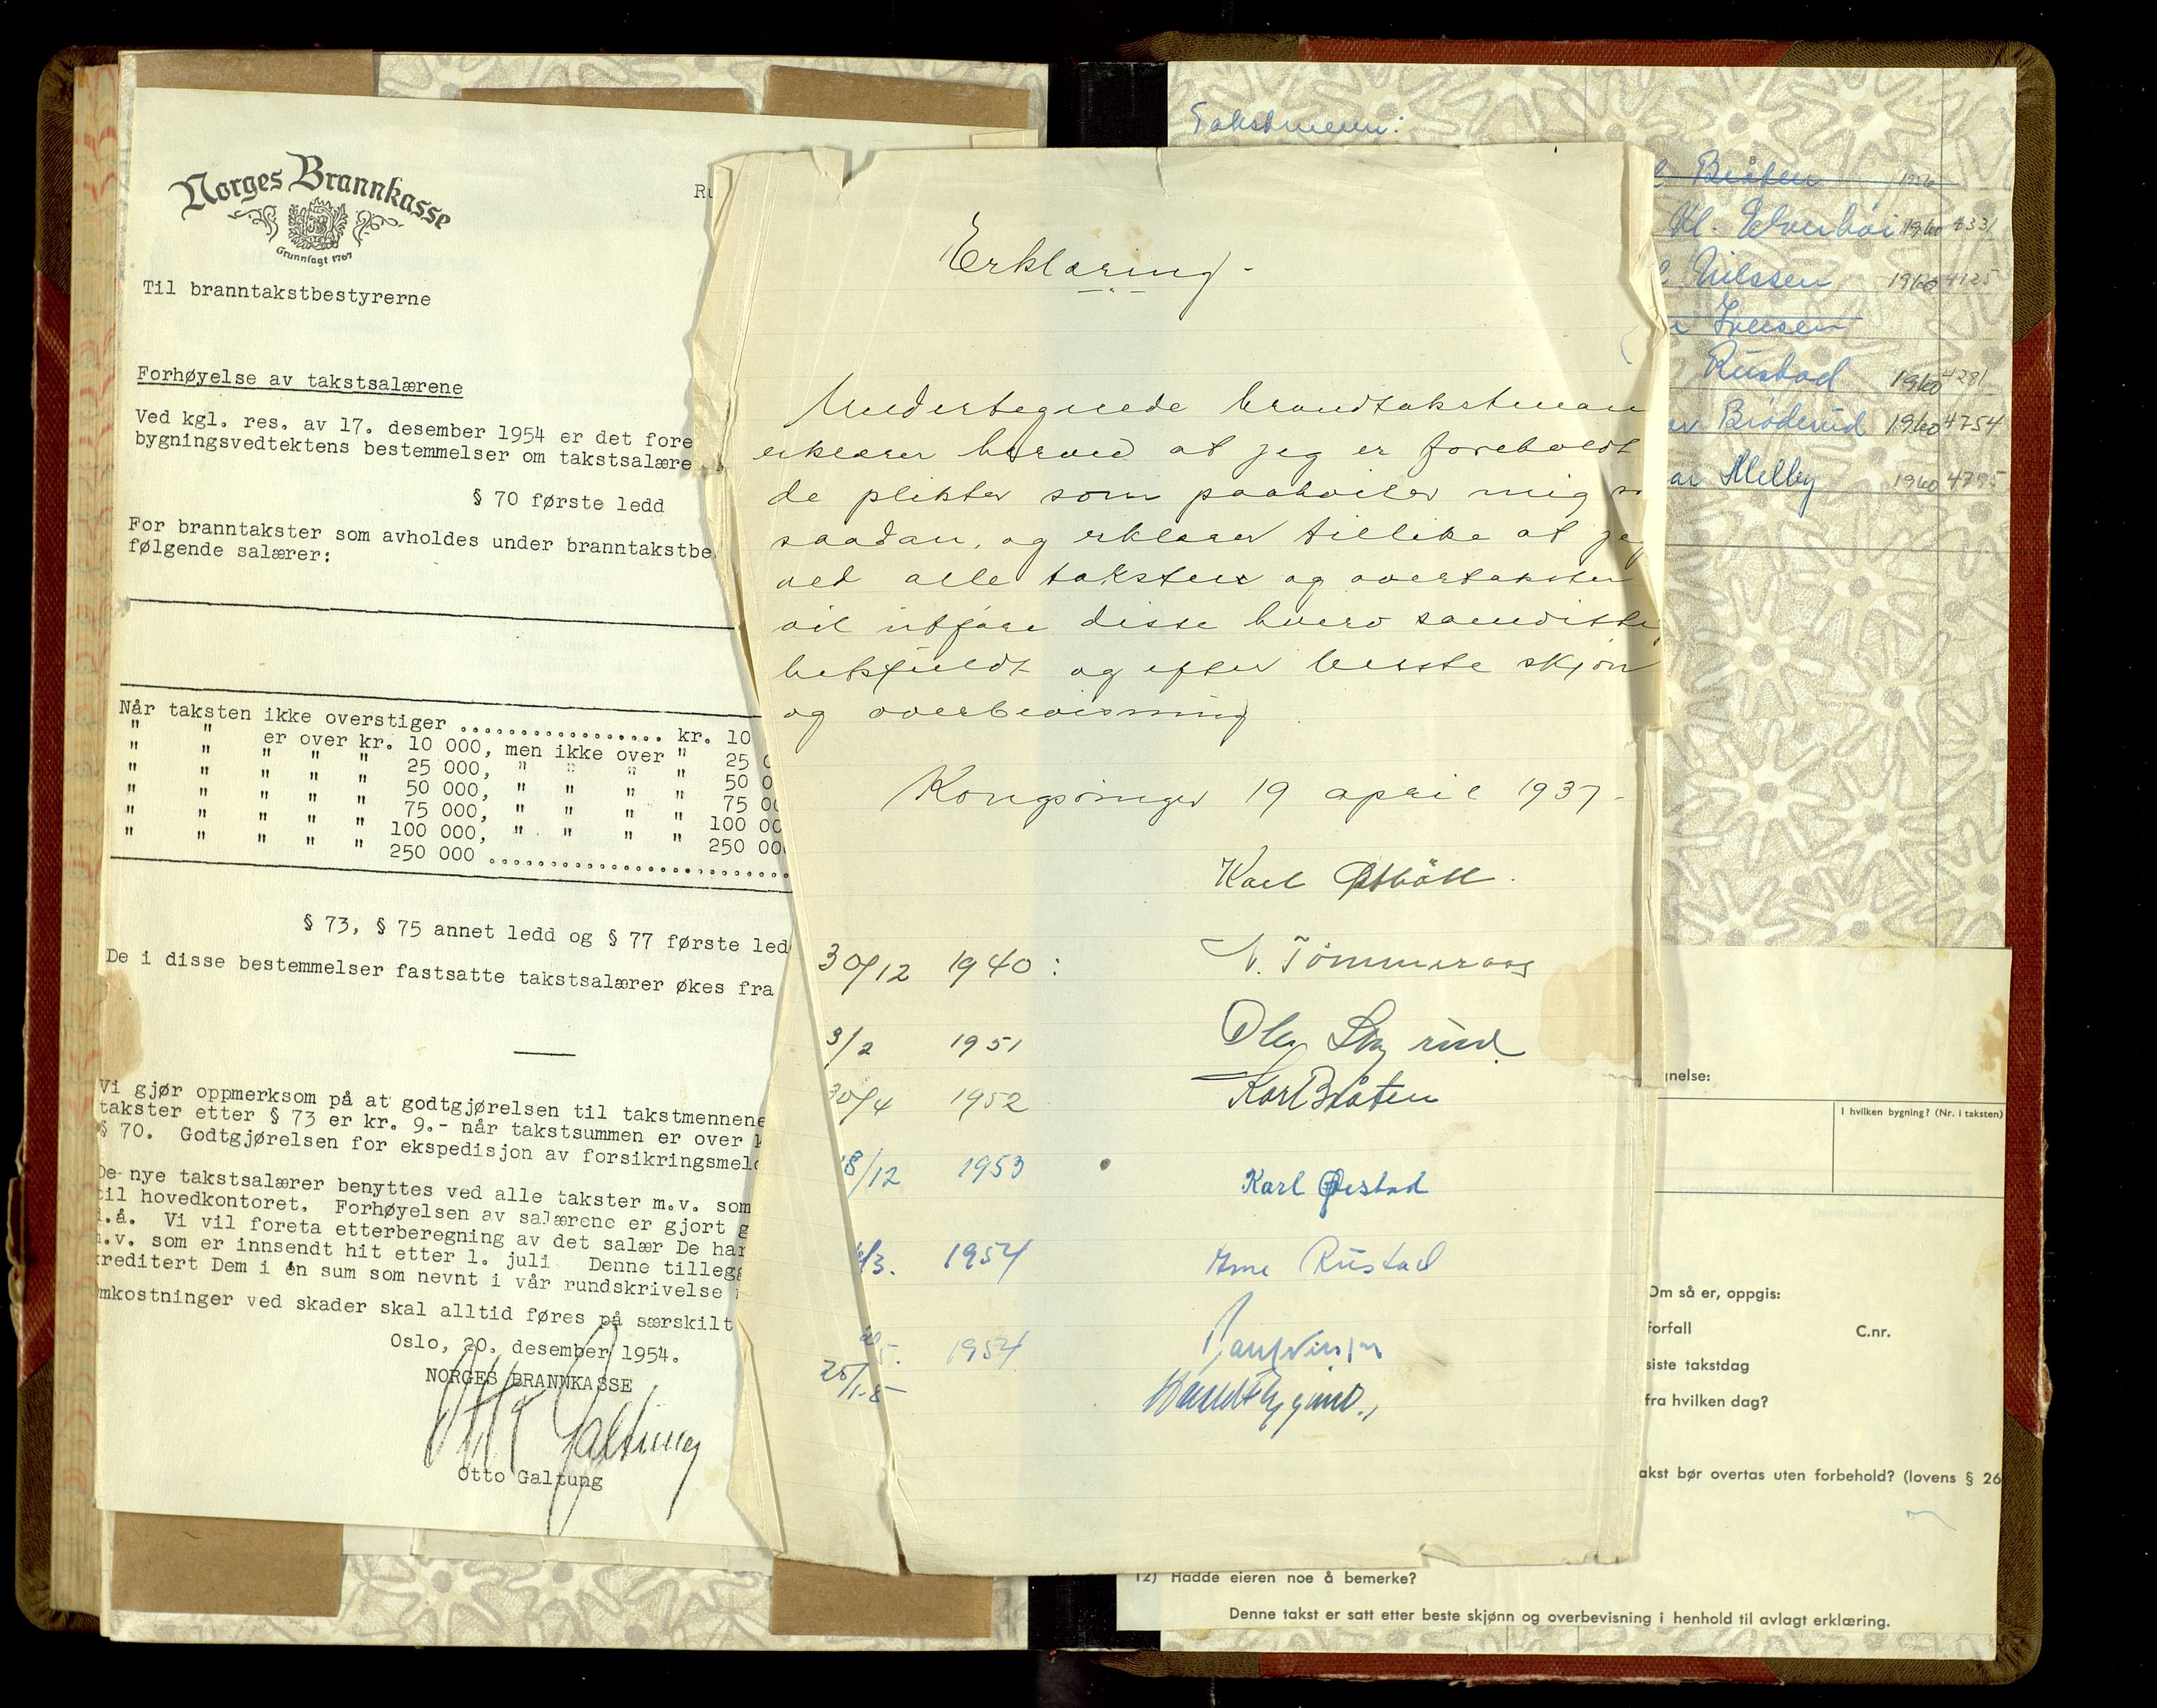 Norges Brannkasse
Grunnlagt 1767
Til branntakstbestyrerne
Forhøyelse av takstsalærene
Ved kgl. res. av 17. desember 1954 er det fore
bygningsvedtektens bestemmelser om takstsalære
§ 70 første ledd
For branntakster som avholdes under branntakstbe
følgende salærer:
Når taksten ikke overstiger .................. kr. 10
" " er over kr. 10 000, men ikke over " 25 0
" " " " " 25 000, " " " " 50 0
" " " " " 50 000, " " " " 75 00
" " " " " 75 000, " " " " 100 00
" " " " " 100 000, " " " " 250 00
" " " " " 250 000 ..........................
§ 73, § 75 annet ledd og § 77 første led
De i disse bestemmelser fastsatte takstsalærer økes fra
Vi gjør oppmerksom på at godtgjørelsen til takstmennene
takster etter § 73 er kr. 9.- når takstsummen er over k
§ 70. Godtgjørelsen for ekspedisjon av forsikringsmeld
De nye takstsalærer benyttes ved alle takster m.v. som
til hovedkontoret. Forhøyelsen av salærene er gjort g
i.å. Vi vil foreta etterberegning av det salær De har
m.v. som er innsendt hit etter 1. juli Denne tillegg
kreditert Dem i én sum som nevnt i vår rundskrivelse
Omkostninger ved skader skal alltid føres på særskilt
Oslo, 20. desember 1954.
NORGES BRANNKASSE
Otto Galtung
Otto Galtung
Erklæring -
Undertegnede brandtakstman
erklærer herved at jeg er foreholdt
de plikter som paahviler mig so
saadan, og erklærer tillike at jeg
ved alle takster og overtakster
vil utføre disse hverv samvittig
hetsfuldt og efter beste skjøn
og overbevisning
Kongsvinger 19 april 1937-
Karl
30/12 1940: N. Tømmeraas
3/2 1951 Ole
30/4 1952 Karl Bråten
18/12 1953 Karl Ørstad
/3. 1954 Arne Rustad
5. 1954
25/1-5
Takstmenn:
Bråten 1956
Kl. Elverhøi 1960 4331
Nilssen 1960 4125
Iversen
Rustad 1960 4281
Bråderud 1960 4754
ar Melby 1960 4795
gnelse:
I hvilken bygning? (Nr. i taksten)
Om så er, oppgis:
forfall C.nr.
siste takstdag
fra hvilken dag?
akst bør overtas uten forbehold? (lovens § 26
12) Hadde eieren noe å bemerke?
Denne takst er satt etter beste skjønn og overbevisning i henhold til avlagt erklæring.